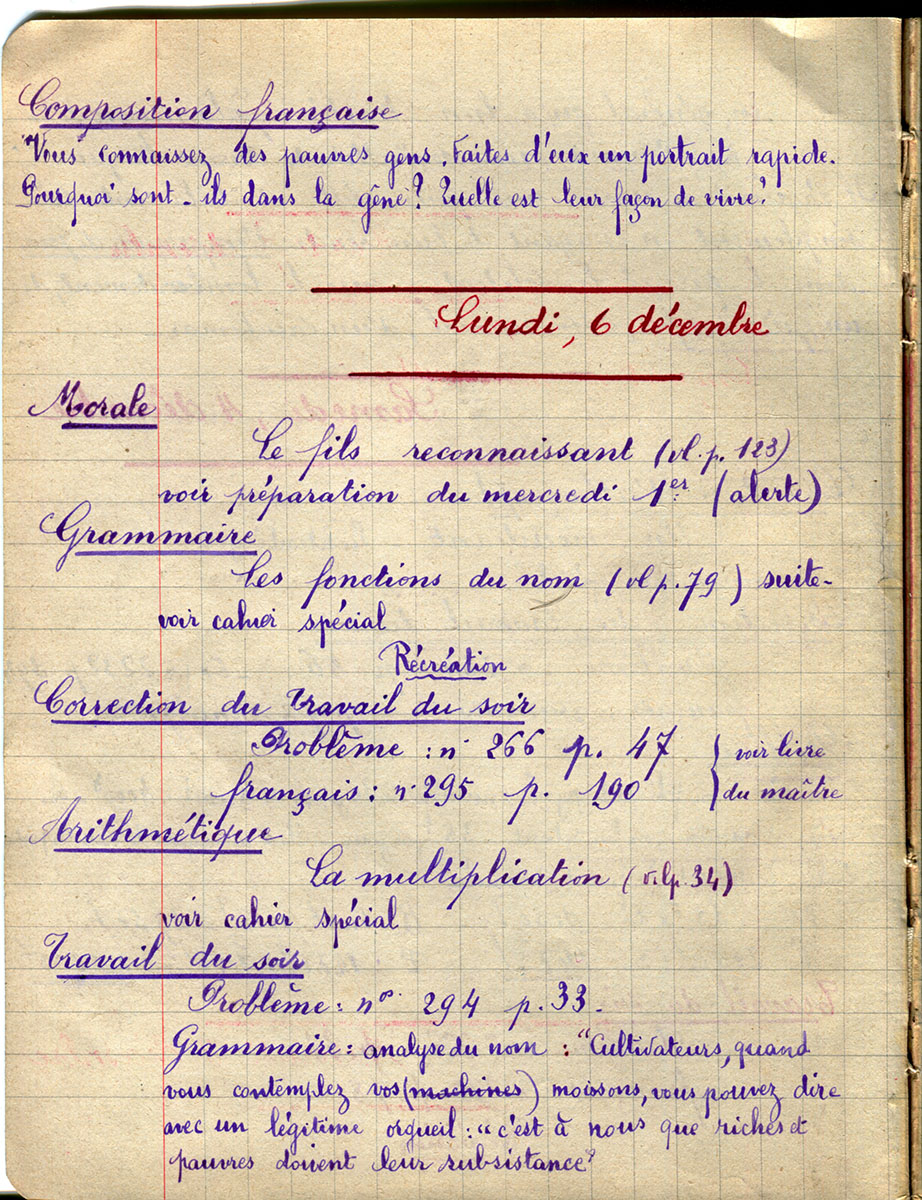 Composition française
Vous connaissez des pauvres gens. Faites d'eux un portrait rapide.
Pourquoi sont-ils dans la gêne? Quelle est leur façon de vivre?
Lundi, 6 décembre
Morale
Le fils reconnaissant (vl. p. 123)
voir préparation du mercredi 1er (alerte)
Grammaire
Les fonctions du nom (vl p. 79) suite-
voir cahier spécial
Récréation
Correction du travail du soir
Problème : n° 266 p. 47 } voir livre
français : n° 295 p. 190 } du maître
Arithmétique
La multiplication (v.lp. 34)
voir cahier spécial
Travail du soir
Problème : no 294 p. 33.
Grammaire : analyse du nom : "Cultivateurs, quand
vous contemplez vos (machines) moissons, vous pouvez dire
avec un légitime orgueil : "c'est à nous que riches et
pauvres doivent leur subsistance"